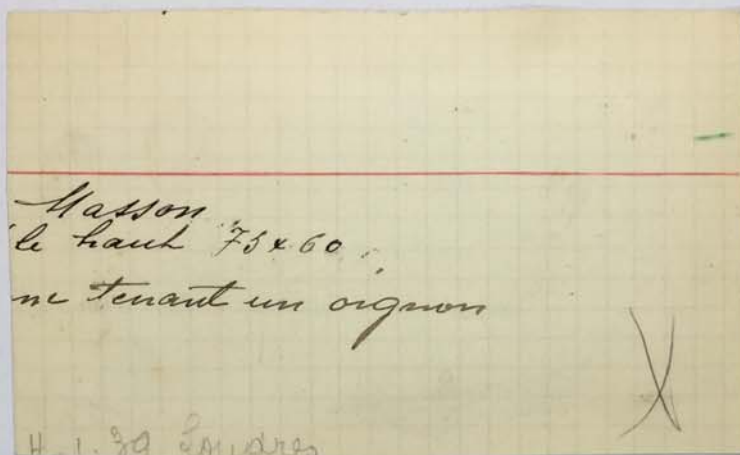 Masson
le haut 73 x 60.
me tenant un oignon
4.1.39 Londres